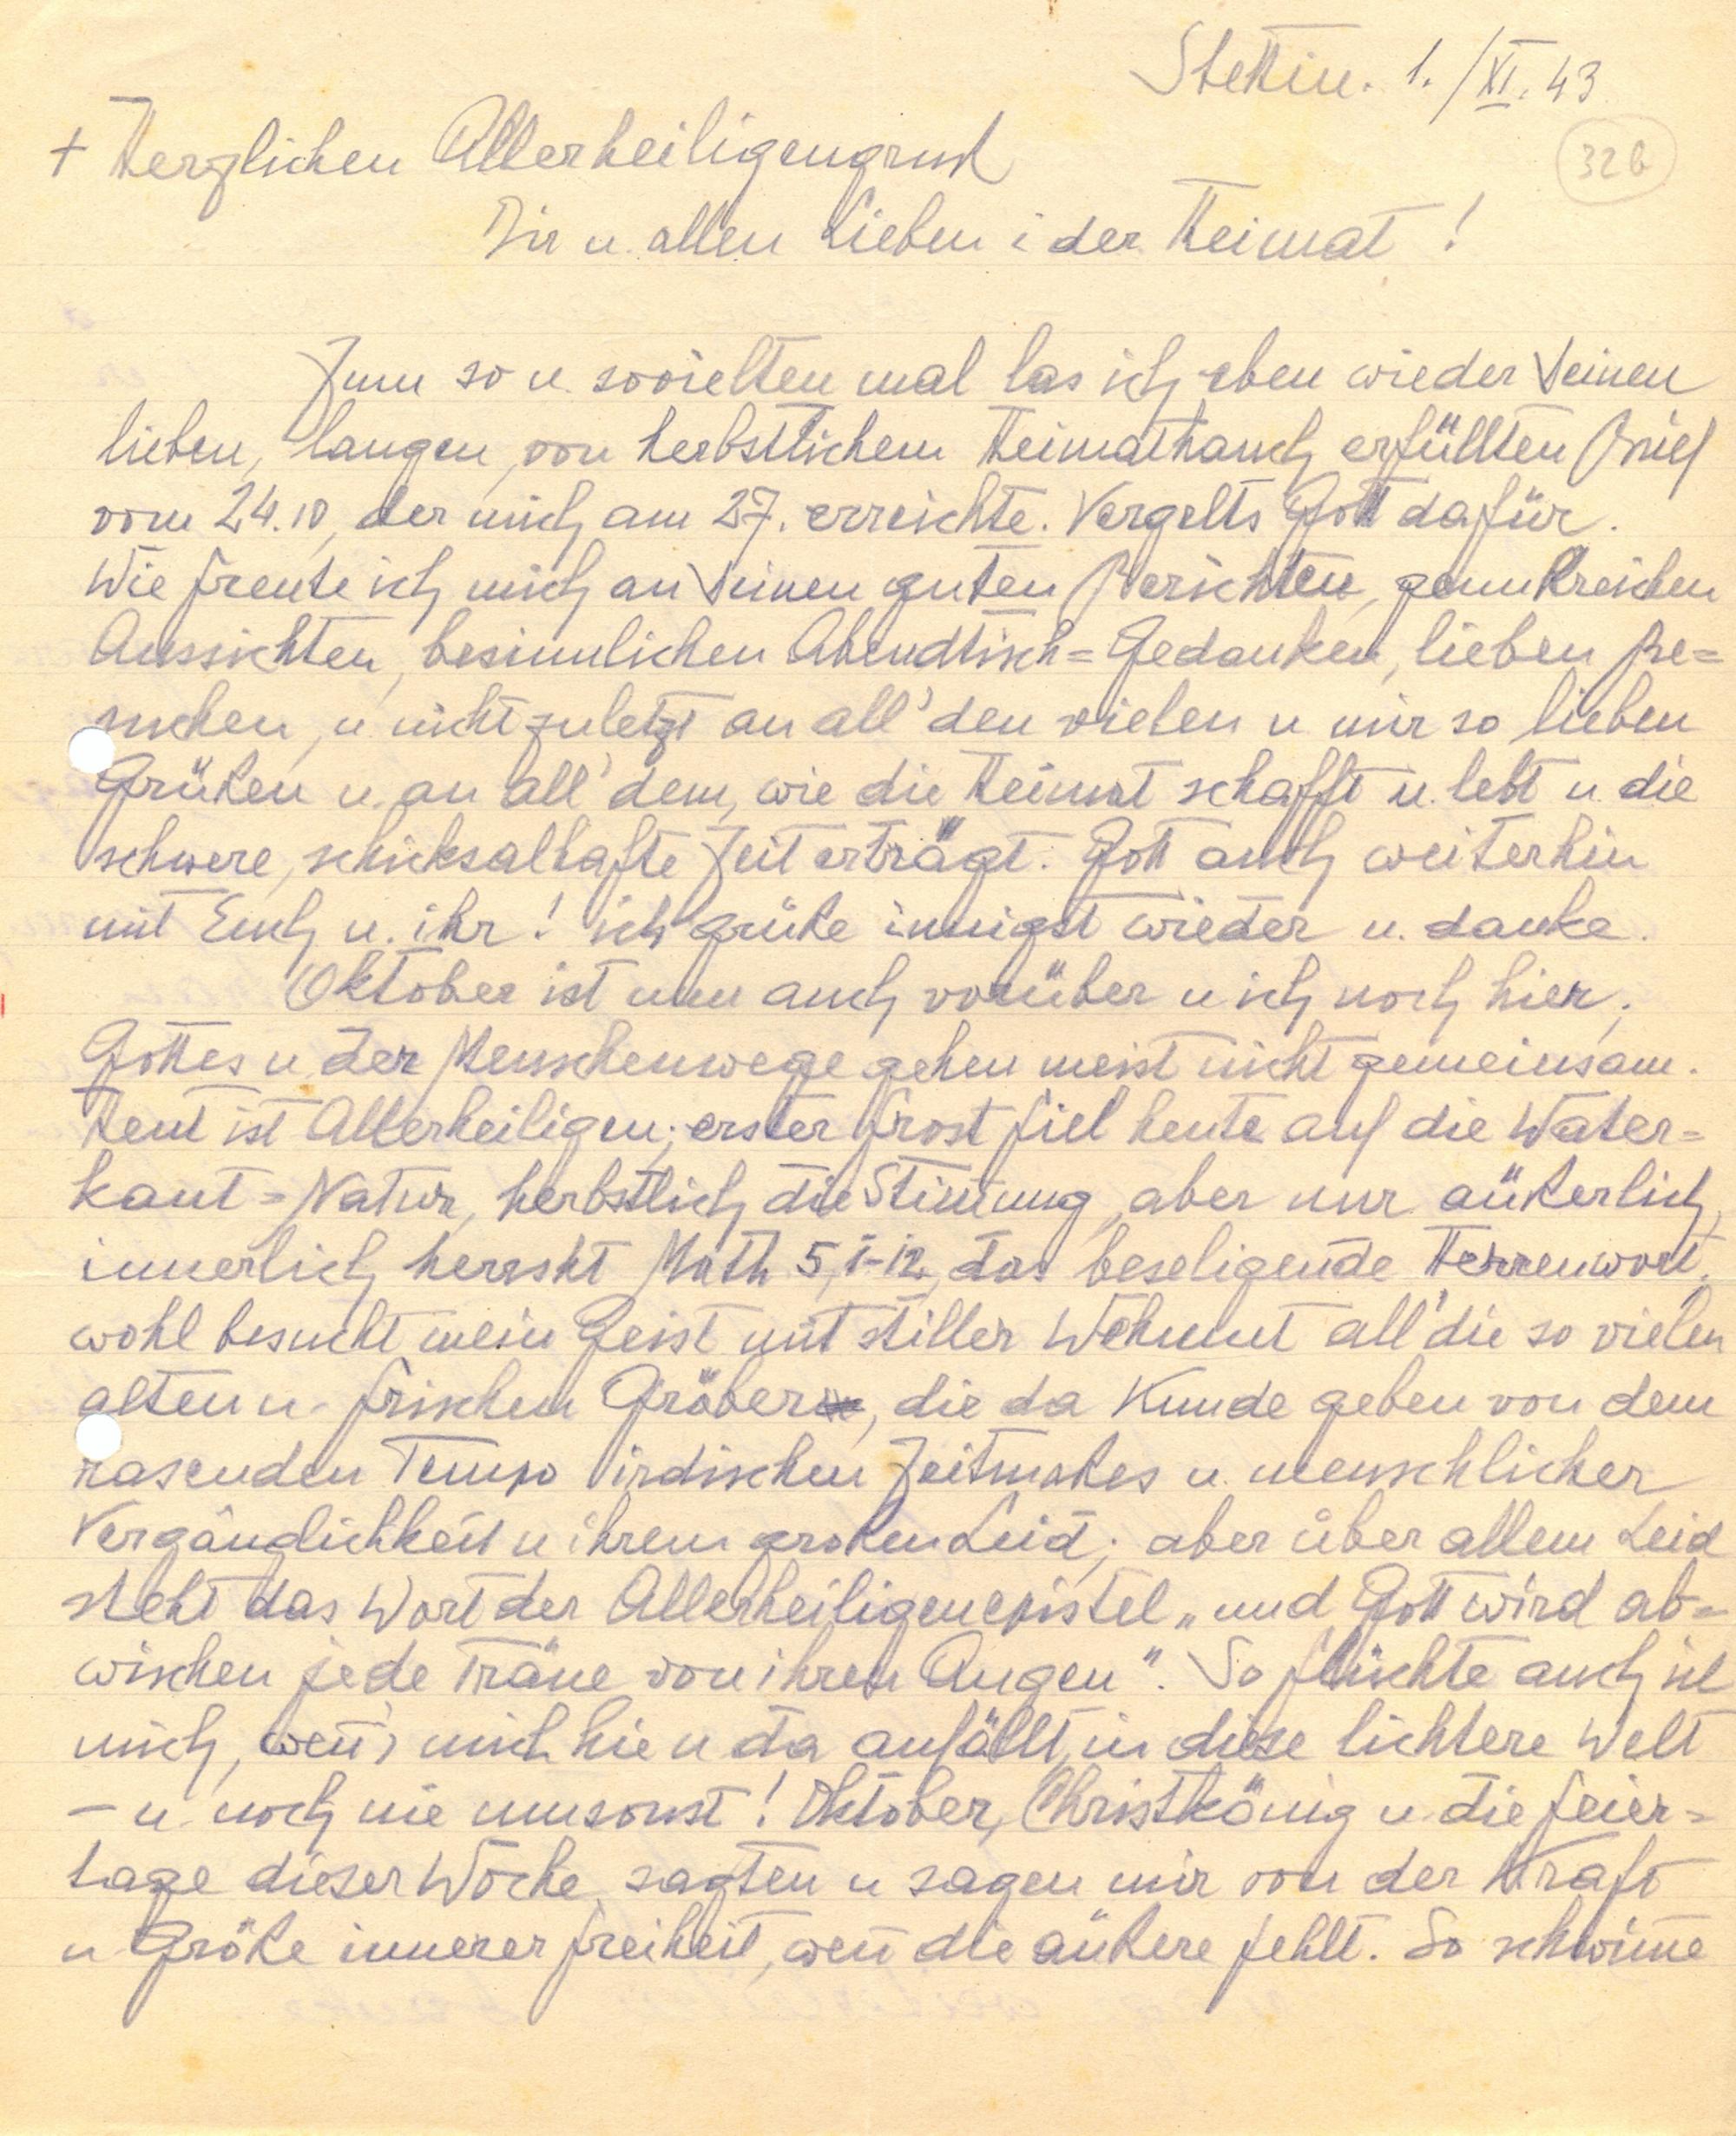 Stettin. 1./XI. 43
32b
+ Herzlichen Allerheiligengruß
Dir u. allen Lieben i der Heimat!
Zum so u. sovielten mal las ich eben wieder Deinen
lieben, langen, von herbstlichem Heimathauch erfüllten Brief
vom 24.10, der mich am 27. erreichte. Vergelts Gott dafür.
Wie freute ich mich an Deinen guten Berichten, genußreichen
Aussichten, besinnlichen Abendtisch=Gedanken, lieben Be=
suchen, u. nicht zuletzt an all' den vielen u mir so lieben
Grüßen u. an all' dem, wie die Heimat schafft u. lebt u. die
schwere, schicksalhafte Zeit erträgt. Gott auch weiterhin
mit Euch u. ihr! ich grüße innigst wieder u. danke.
Oktober ist nun auch vorüber u ich noch hier,
Gottes u. der Menschenwege gehen meist nicht gemeinsam.
Heut ist Allerheiligen; erster Frost fiel heute auf die Water=
kant=Natur, herbstlich die Stimmung, aber nur äußerlich,
innerlich herrscht Math 5, 1-12, das beseligende Herrenwort.
wohl besucht mein Geist mit stiller Wehmut all' die so vielen
alten u. frischen Gräber, die da Kunde geben von dem
rasenden Tempo irdischen Zeitmaßes u. menschlicher
Vergänglichkeit u ihrem großen Leid; aber über allem Leid
steht das Wort der Allerheiligenepistel „und Gott wird ab=
wischen jede Träne von ihren Augen". So flüchte auch ich
mich, wen̅'s mich hie u da anfällt, in diese lichtere Welt
– u. noch nie umsonst! Oktober, Christkönig u. die Feier=
tage dieser Woche sagten u sagen mir von der Kraft
u Größe innerer Freiheit, wen̅ die äußere fehlt. So schwim̅e